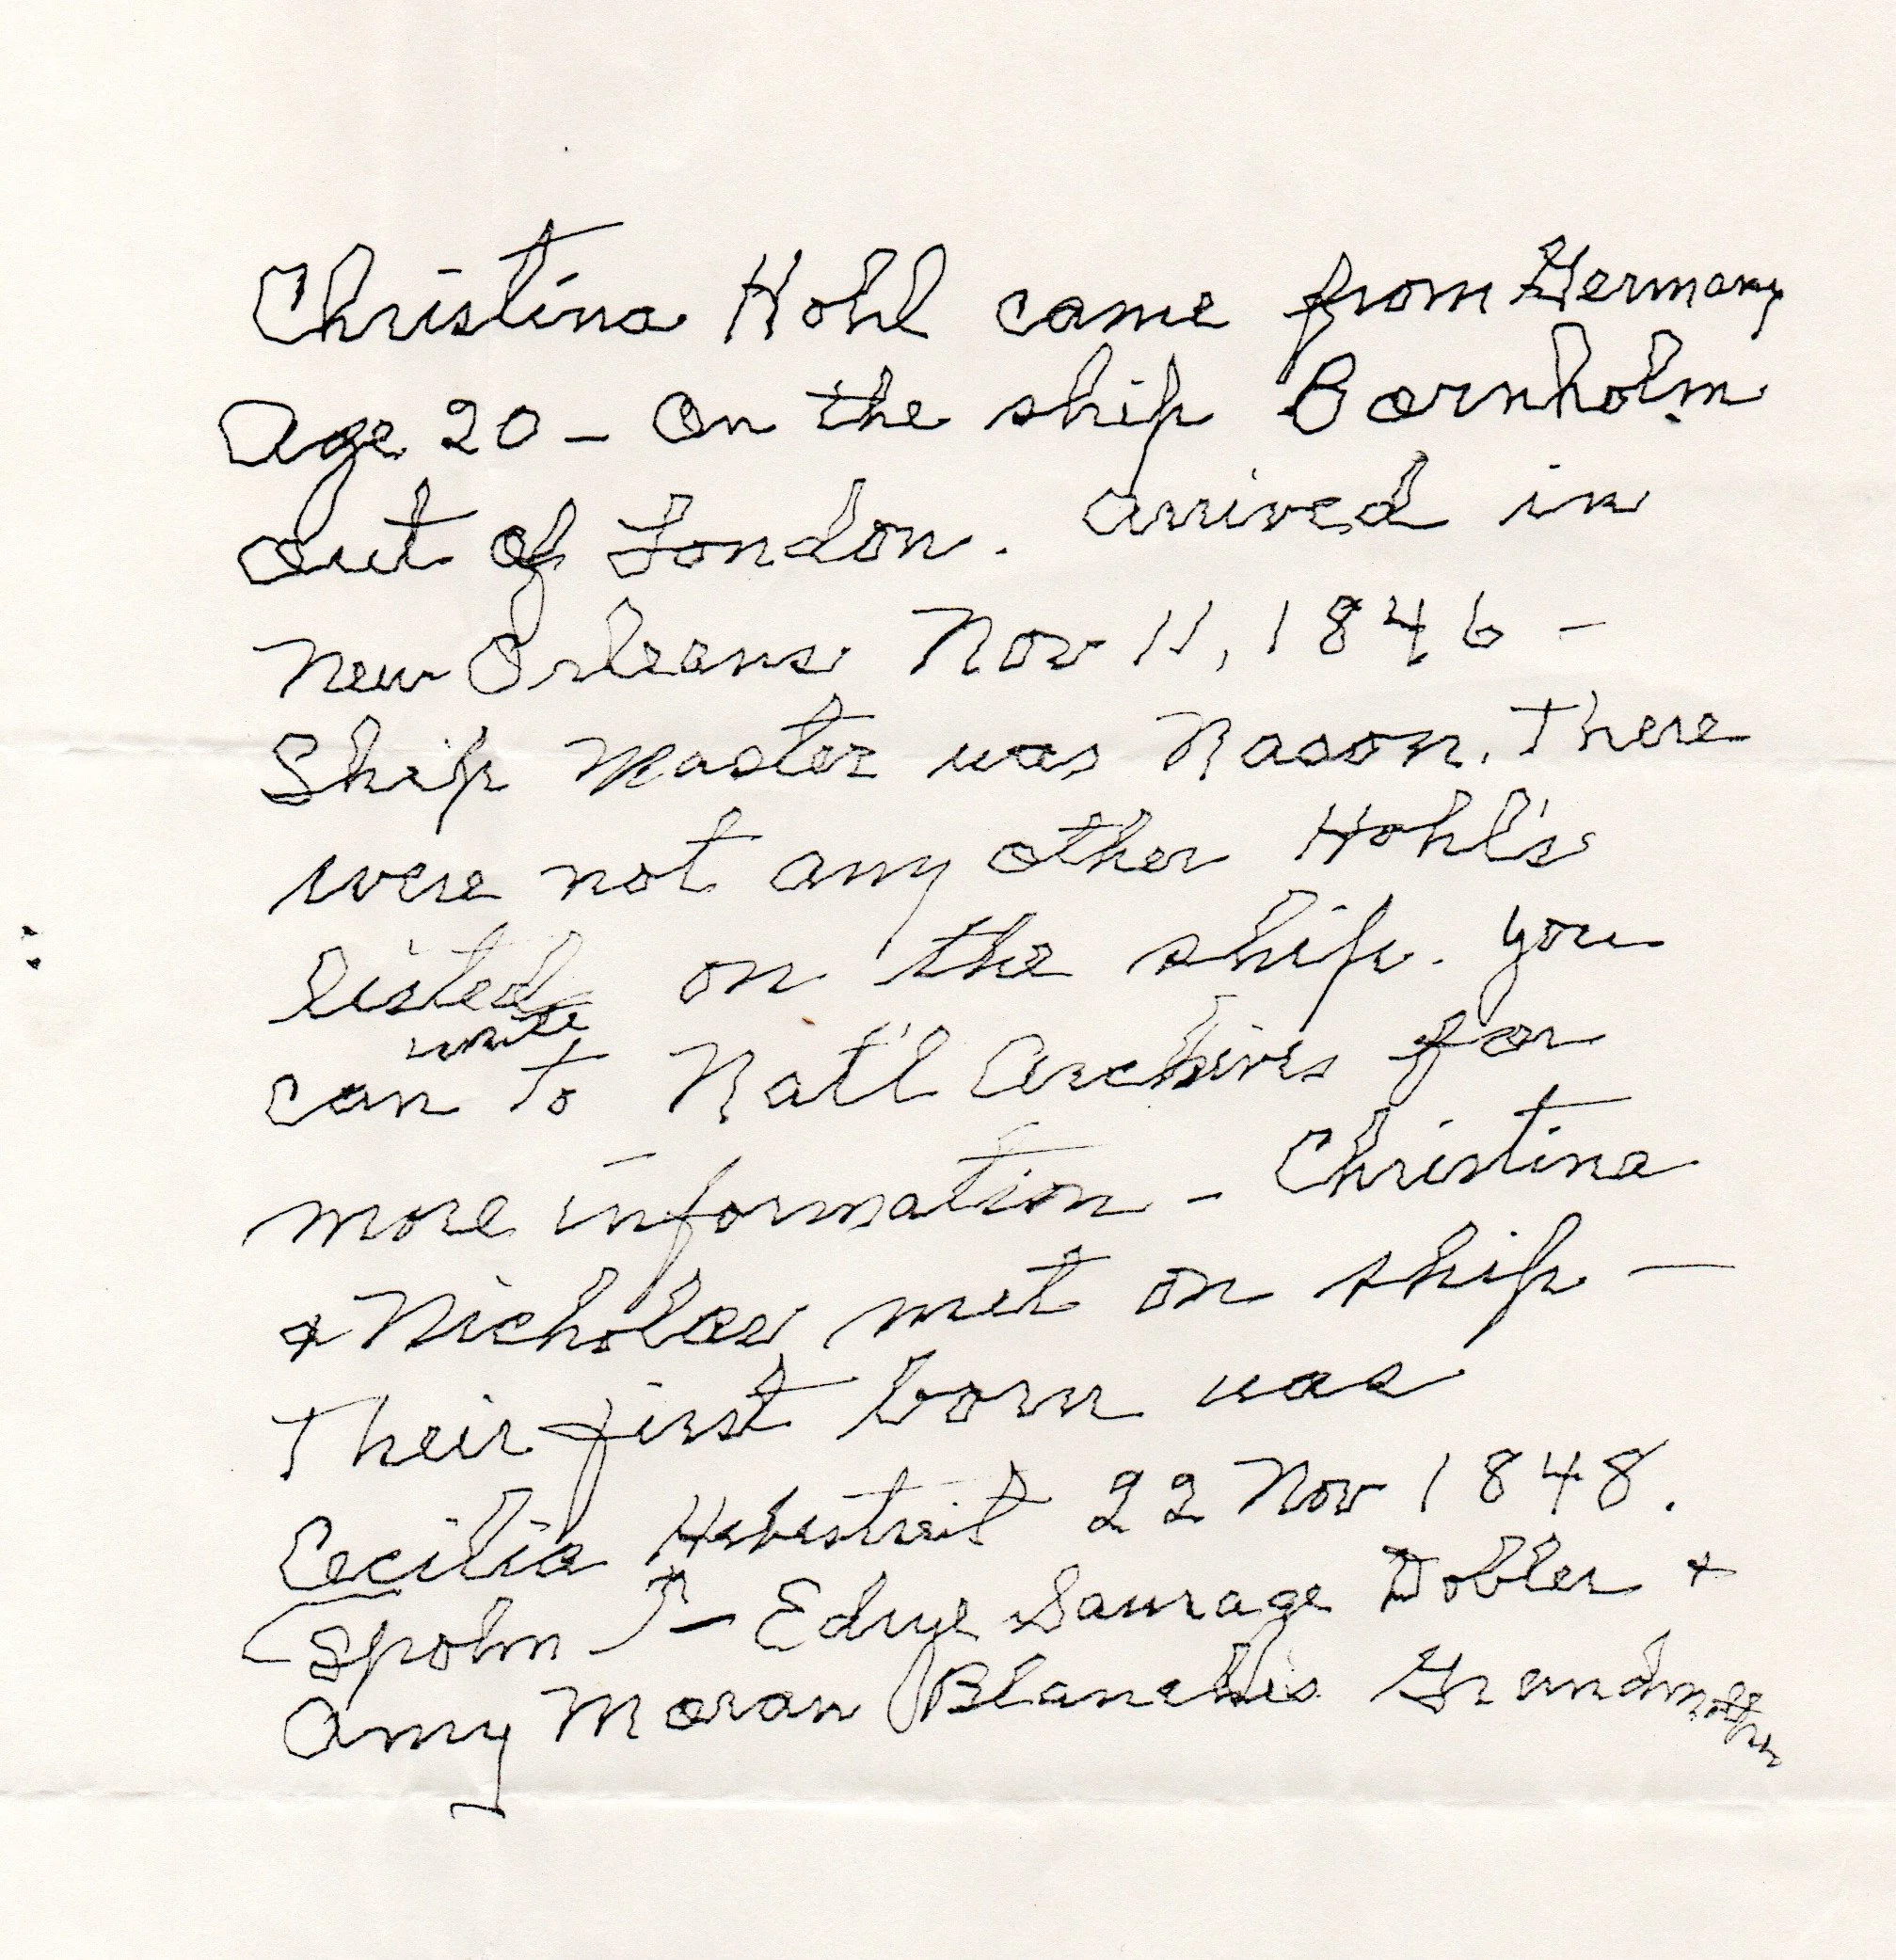 Christina Hohl came from Germany
Age 20 - On the ship Bornholm
out of London. Arrived in
New Orleans Nov 11, 1846 -
Ship Master was Nason. There
were not any other Hohl's
listed on the ship. You
write
can to Nat'l Archives for
more information - Christina
& Nicholas met on ship -
Their first born was
Cecilia Hebestreit 22 Nov 1848.
(Spohn) - Edrye Saurage Dobler &
Amy Moran Blanche's Grandmother